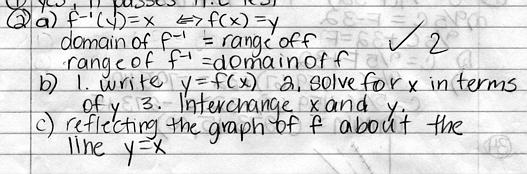 ② a) f⁻¹(y)=x ⟺ f(x)=y
domain of f⁻¹ = range of f
range of f⁻¹ = domain of f ✓ 2
b) 1. write y=f(x) 2. solve for x in terms
of y 3. Interchange x and y.
c) reflecting the graph of f about the
line y=x